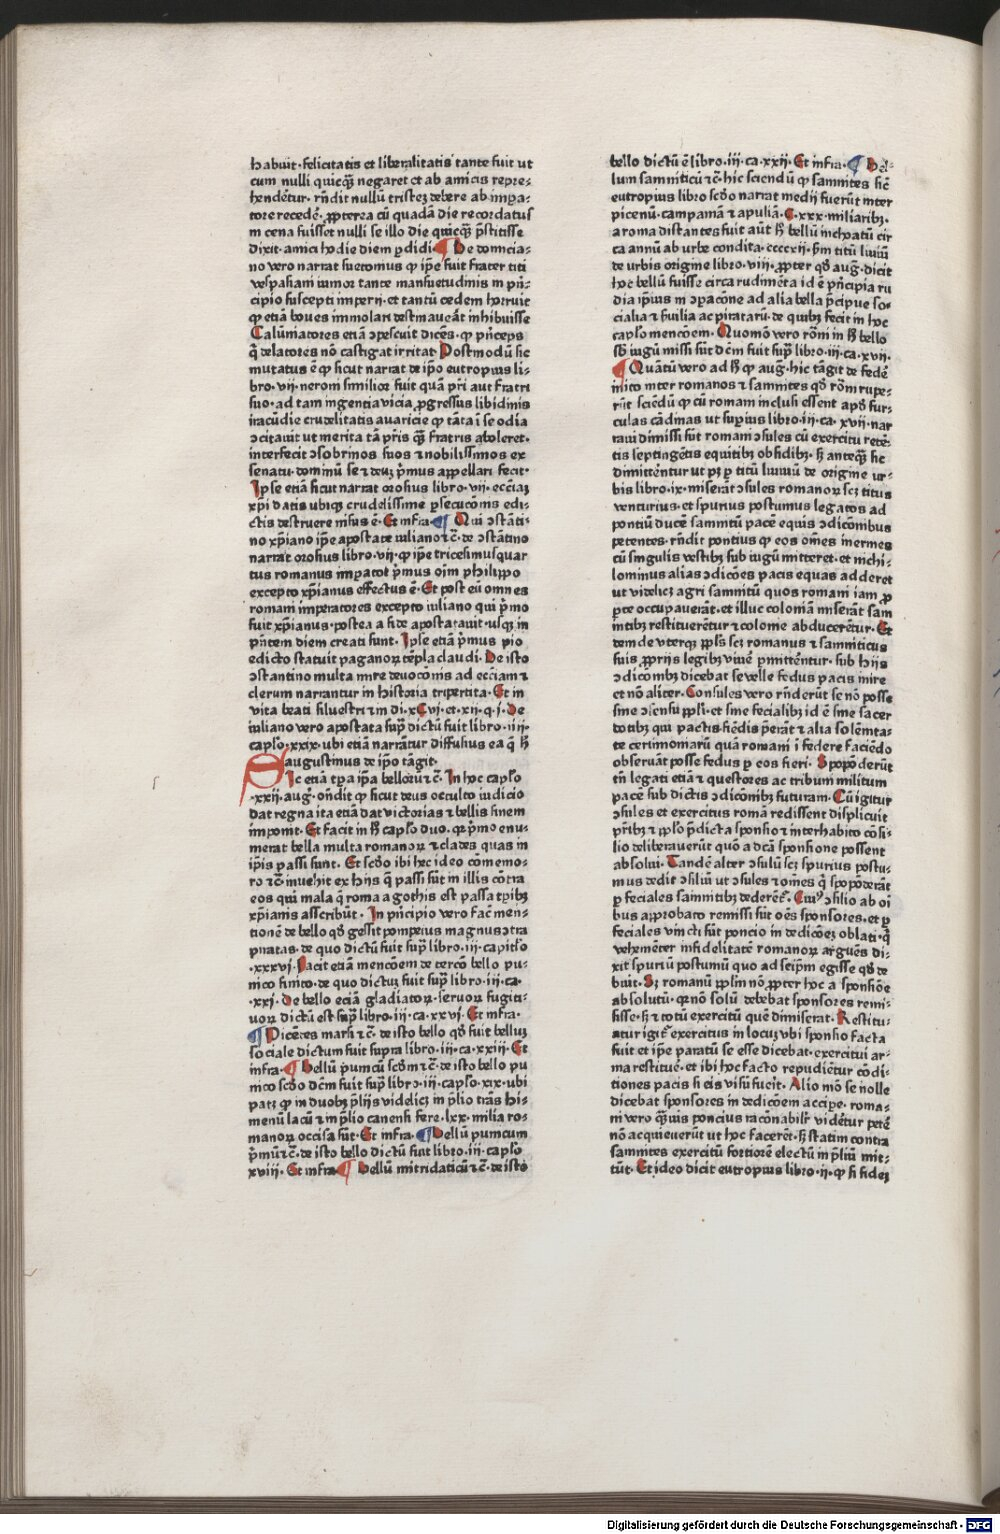 habuit·felicitatis et liberalitatis tante fuit ut
cum nulli quicq̃ȝ negaret et ab amicis repre⸗
henderet̃ur·rñdit nullũ tristeȝ debere ab imꝑa⸗
tore recedẽ·ꝓpterea cũ quadã die recordatus
in cena fuisset nulli se illo die quicq̃ȝ p̃stitisse
dixit·amici hodie diem ꝑdidi ¶ De domicia⸗
no vero narrat suetonius ꝙ ip̃e fuit frater titi
vespasiani iunior tante mansuetudinis in pñ⸗
cipio suscepti imperij·et tantũ cedem horruit
ꝙ etiã boues immolari destinauerãt inhibuisse
Calũniatores etiã ↄpescuit dicẽs·ꝙ pñceps
q̃ delatores nõ castigat irritat Postmodũ sic
mutatus ẽ ꝙ sicut narrat de ip̃o eutropius li⸗
bro·vij·neroni similior fuit quã pr̃i aut fratri
suo·ad tam ingentia vicia ꝓgressus libidinis
iracũdie crudelitatis auaricie ꝙ tãta ĩ se odia
ↄcitauit ut merita tã pr̃is q̃ȝ fratris aboleret·
interfecit ↄsobrinos suos ⁊ nobilissimos ex
senatu·dominũ se ⁊ deuȝ p̃mus appellari fecit·
Ipse etiã sicut narrat orosius libro·vij·ecc̃iaȝ
xp̃i datis ubiqȝ crudelissime ꝑsecucõis edi⸗
ctis destruere nisus ẽ·Et infra ¶ Qui ↄstãti⸗
no xp̃iano ip̃e apostate iuliano⁊c̃·de ↄstãtino
narrat orosius libro·vij·ꝙ ip̃e tricesimusquar
tus romanus imꝑator p̃mus oĩm philippo
excepto xp̃ianus effectus ẽ·Et post eũ omnes
romani imperatores excepto iuliano qui p̃mo
fuit xp̃ianus·postea a fide apostatauit·usqȝ in
pñtem diem creati sunt·Ipse etiã p̃mus pio
edicto statuit paganoꝝ tẽpla claudi·De isto
ↄstantino multa mire deuocõis ad ecc̃iam ⁊
clerum narrantur in historia tripertita·Et in
vita beati siluestri ⁊ in di·xCvj·et·xij·q·j·De
iuliano vero apostata suꝑ dictũ fuit libro·iiij·
cap̃lo·xxix·ubi etiã narrãtur diffusius ea q̃ h̃
augustinus de ip̃o tãgit·
Sic etiã tꝑa ip̃a belloꝝ ⁊c̃·In hoc cap̃lo
·xxij·aug̃·oñdit ꝙ sicut deus occulto iudicio
dat regna ita etiã dat victorias ⁊ bellis finem
imponit·Et facit in h̃ cap̃lo duo·qꝛ p̃mo enu⸗
merat bella multa romanoꝝ ⁊ clades quas in
ip̃is passi sunt·Et scđo ibi hec ideo cõmemo⸗
ro ⁊c̃·inuehit ex hijs q̃ passi sũt in illis cõtra
eos qui mala q̃ roma a gothis est passa tꝑibȝ
xp̃ianis asscribũt·In pñcipio vero fac̃ men⸗
tionẽ de bello qđ gessit pompeius magnus ↄtra
piratas·de quo dictũ fuit suꝑ libro·iij·capitl̃o
·xxxvj·Facit etiã mencõem de tercõ bello pu⸗
nico finito·de quo dictuȝ fuit suꝑ libro·iij·ca·
·xxj·De bello eciã gladiatoꝝ·seruoꝝ fugiti⸗
uoꝝ dictũ est suꝑ libro·iij·ca·xxvj·Et infra·
¶ Picẽtes marsi ⁊c̃·de isto bello qđ fuit belluȝ
sociale dictum fuit supra libro·iij·ca·xxiij·Et
infra·¶ Bellũ punicũ scđm ⁊c̃·de isto bello pu
nico scđo dc̃m fuit suꝑ libro·iij·cap̃lo·xix·ubi
patȝ ꝙ in duobȝ p̃lijs videlicȝ in p̃lio trãs hi⸗
menũ lacũ ⁊ in p̃lio canensi fere·lxx·milia ro⸗
manoꝝ occisa sũt·Et infra·¶ Bellũ punicum
p̃mũ ⁊c̃·de isto bello dictũ fuit libro·iij·cap̃lo
xviij·Et infra ¶ Bellũ mitridaticũ ⁊c̃·de isto
bello dictũ ẽ libro·iij·ca·xxij·Et infra·¶ Bel⸗
lum samniticũ ⁊c̃·hic sciendũ ꝙ samnites sic̃
eutropius libro scđo narrat medij fuerũt inter
picenũ·campaniã ⁊ apuliã·C·xxx·miliaribȝ·
a roma distantes fuit aũt h̃ bellũ inchoatũ cir
ca annũ ab urbe condita·ccccxij·s̃m titũ liuiũ
de urbis origine libro·viij·ꝓpter qđ aug̃·dicit
hoc bellũ fuisse circa rudimẽta id ẽ pñcipia ru
dia ip̃ius in ↄpacõne ad alia bella p̃cipue so⸗
cialia ⁊ ẜuilia ac piratarũ·de quibȝ fecit in hoc
cap̃lo mencõem·Quomõ vero rõni in h̃ bello
sb̃ iugũ missi sũt dc̃m fuit suꝑ libro·iij·ca·xvij·
¶ Quãtũ vero ad h̃ ꝙ aug̃·hic tãgit de fedẽ
inito inter romanos ⁊ samnites qđ rõni rupe⸗
rũt sciendũ ꝙ cũ romani inclusi essent apđ fur⸗
culas cãdinas ut supius libro·iij·ca·xvij·nar
raui dimissi sũt romani ↄsules cũ exercitu retẽ⸗
tis septingẽtis equitibȝ obsidibȝ·ẜ antequã sic
dimittẽntur ut pȝ ꝑ titũ liuiũ de origine ur⸗
bis libro·ix·miserãt ↄsules romanoꝝ scȝ titus
venturius·et spurius postumus legatos ad
pontiũ ducẽ samnitũ pacẽ equis ↄdicõnibus
petentes·rñdit pontius ꝙ eos om̃es inermes
cũ singulis vestibȝ sub iugũ mitteret·et nichi⸗
lominus alias ↄdicões pacis equas adderet
ut videlicȝ agri samnitũ quos romani iam ꝓ
ꝑte occupauerãt·et illuc coloniã miserãt sam
nitibȝ restituerẽtur ⁊ colonie abducerẽtur·Et
tẽm de uterqȝ pp̃ls scȝ romanus ⁊ samniticus
suis ꝓprijs legibȝ viuẽ ꝑmittẽntur·sub hijs
ↄdicõnibȝ dicebat se velle fedus pacis inire
et nõ aliter·Consules vero rñderũt se nõ posse
sine ↄsensu pp̃li·et sine fecialibȝ id ẽ sine sacer
dotibȝ qui pactis fiẽdis p̃erãt ⁊ alia solẽnita⸗
te cerimoniarũ quã romani ĩ federe faciẽdo
obseruãt posse fedus ꝑ eos fieri·Spopõderũt
tñ legati etiã ⁊ questores ac tribuni militum
pacẽ sub dictis ↄdicõnibȝ futuram·Cũ igitur
ↄsules et exercitus romã redissent displicuit
pr̃ibȝ ⁊ pp̃lo p̃dicta sponsio ⁊ interhabito cõsi⸗
lio deliberauerũt quõ a dc̃a sponsione possent
absolui·Tandẽ alter ↄsulũ scȝ spurius postu⸗
mus dedit ↄsiliũ ut ↄsules ⁊ om̃es q̃ spopõderãt
ꝑ feciales samnitibȝ dederẽt̃·Cui⁹ ↄsilio ab oĩ
bus approbato remissi sũt oẽs sponsores·et ꝑ
feciales vincti sũt poncio in dedicõeȝ oblati·q̃
vehemẽter infidelitatẽ romanoꝝ arguẽs di⸗
xit spuriũ postumũ quo ad seip̃m egisse qđ de
buit·Sȝ romanũ pp̃lm nõ ꝓpter hoc a sponsiõe
absolutũ·qꝛ nõ solũ debebat sponsores remi⸗
sisse·ẜ ⁊ totũ exercitũ quẽ dimiserat·Restitu⸗
atur igit̃ exercitus in locuȝ ubi sponsio facta
fuit et ip̃e paratũ se esse dicebat·exercitui ar⸗
ma restituẽ·et ibi hoc facto repudiẽtur cõdi⸗
tiones pacis si eis visũ fuerit·Alio mõ se nolle
dicebat sponsores in dedicõem accipe·roma⸗
ni vero q̃ȝuis poncius racõnabilr̃ videt̃ur petẽ
nõ acquieuerũt ut hoc facerẽt·ẜ statim contra
samnites exercitũ fortiorẽ electũ in p̃liũ mit⸗
tũt·Et ideo dicit eutropius libro·ij·ꝙ si fideȝ
Digitalisierung gefördert durch die Deutsche Forschungsgemeinschaft - DFG